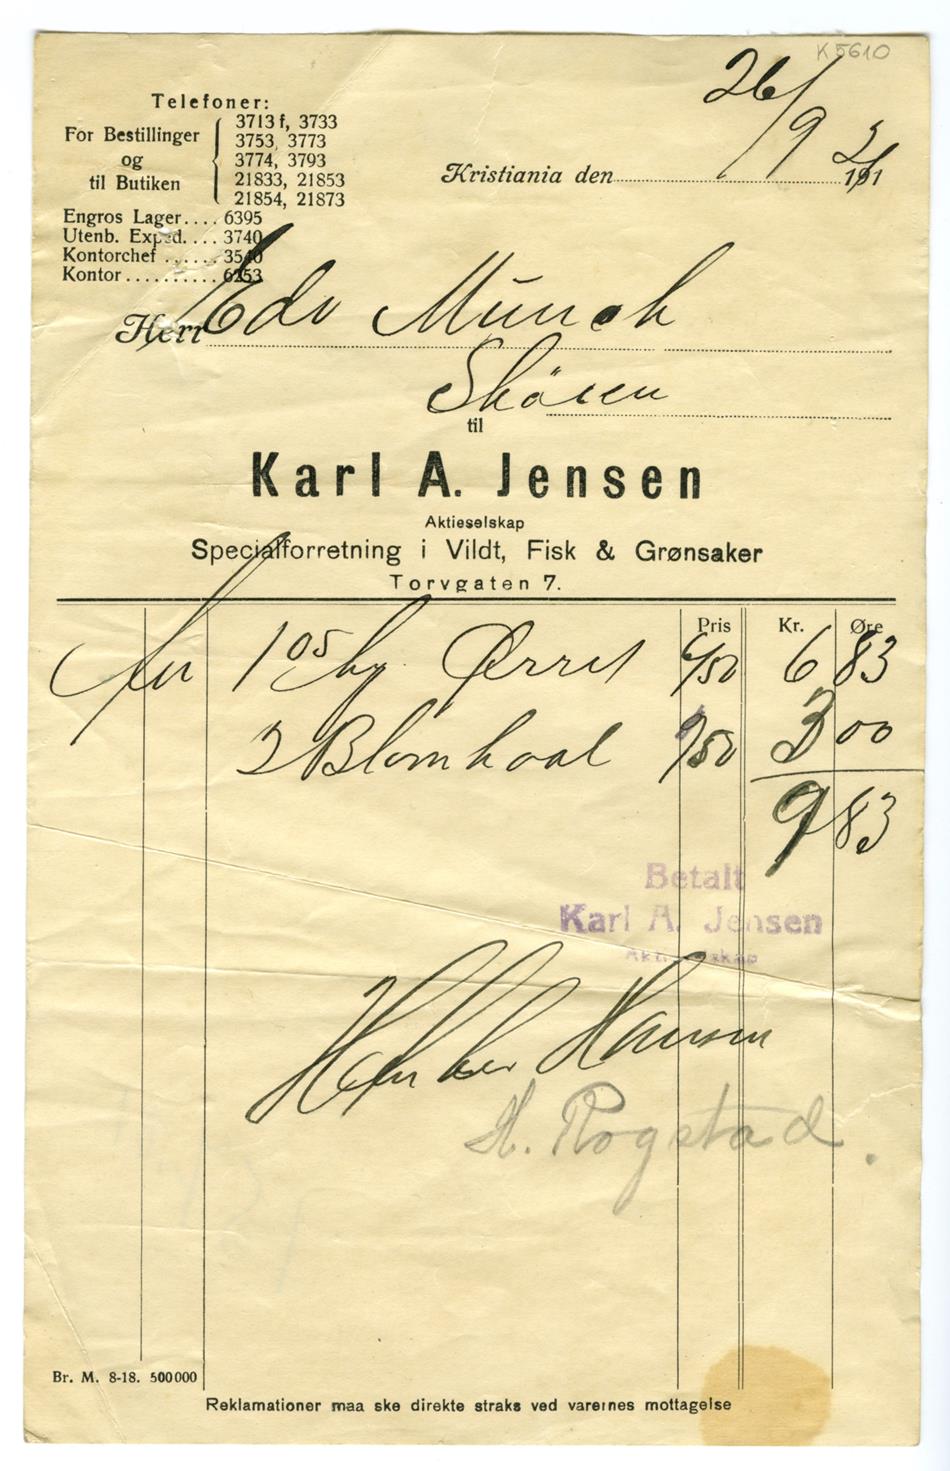 K 5610
26/9 21
Telefoner:
For Bestillinger og til Butiken
3713 f, 3733
3753, 3773
3774, 3793
21833, 21853
21854, 21873
Kristiania den 191
Engros Lager.... 6395
Utenb. Exped. ... 3740
Kontorchef ...... 3540
Kontor .......... 6253
Herr Edv Munch
Skøien
til
Karl A. Jensen
Aktieselskap
Specialforretning i Vildt, Fisk & Grønsaker
Torvgaten 7.
Pris Kr. Øre
1 05 kg Ørret 6/50 6 83
2 Blomkaal 1/50 3 00
9 83
Betalt
Karl A. Jensen
Aktieselskap
Hansen
H. Rogstad.
Br. M. 8-18. 500000
Reklamationer maa ske direkte straks ved varernes mottagelse